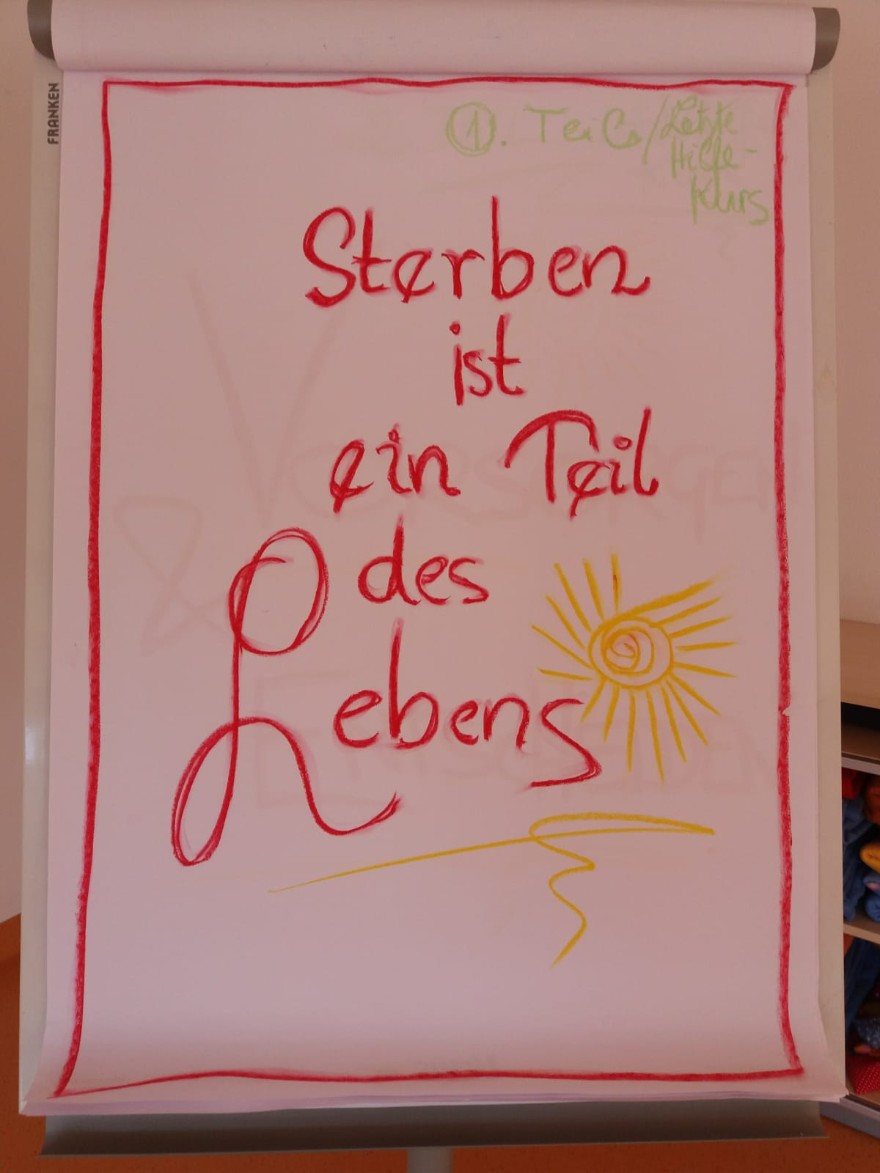 FRANKEN
①. Teil/Letzte
Hilfe-
Kurs
Sterben
ist
ein Teil
des
Lebens
VORSORGEN
&
ENTSCHEIDEN